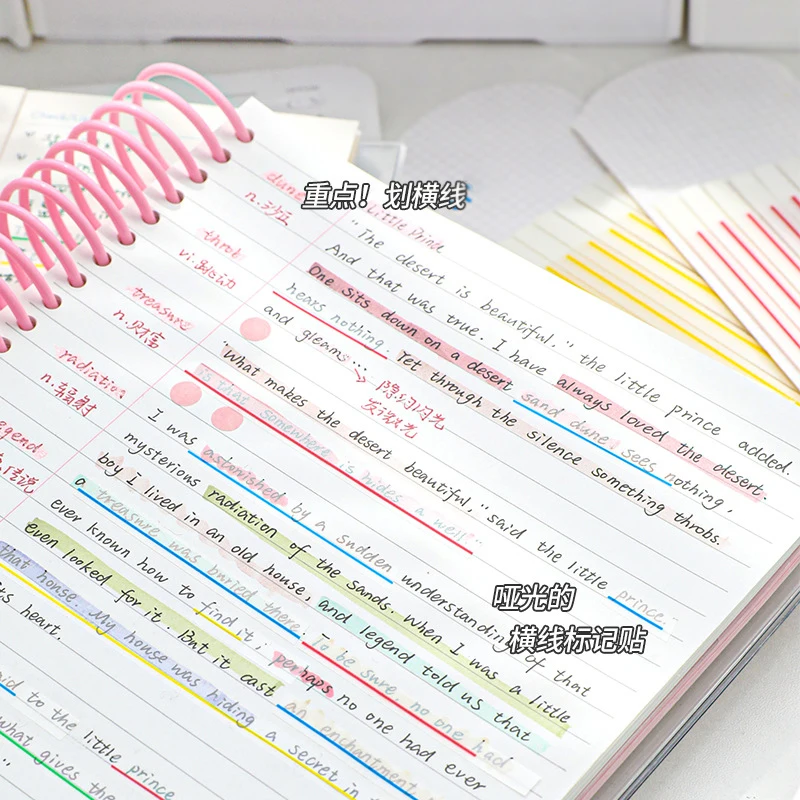 重点！划横线
dune
n.沙丘
throb
treasure
n.财富
radiation
n.辐射
legend
Little Prince
"The desert is beautiful." the little prince added.
And that was true. I have always loved the desert.
One sits down on a desert sand dune, sees nothing,
hears nothing. Yet through the silence something throbs.
and gleams...
发微光
"What makes the desert beautiful," said the little prince.
is that somewhere is hides a well..."
I was astonished by a sudden understanding of that
mysterious radiation of the sands. When I was a little
boy I lived in an old house, and legend told us that
a treasure was buried there. To be sure no one had
ever known how to find it; perhaps no one had ever
even looked for it. But it cast an enchantment
that house. My house was hiding a secret in
its heart.
to the little prince
what gives the
哑光的
横线标记贴